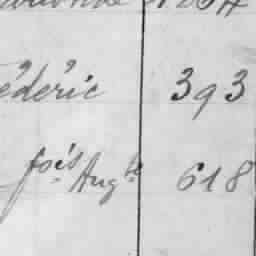 édéric 393
fois Aug te 618